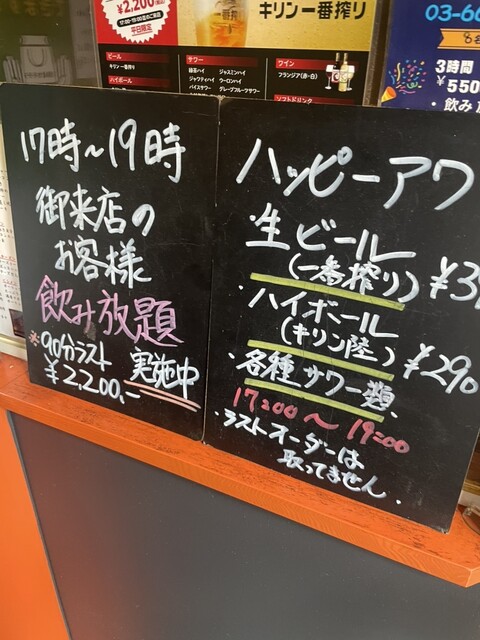 ¥2,200
17:00-19:00のご来店
平日限定
キリン一番搾り
ビール
キリン一番搾り
ハイボール
サワー
緑茶ハイ ジャスミンハイ
ジャワティハイ ウーロンハイ
バイスサワー グレープフルーツサワー
ワイン
フランジア(赤・白)
ソフトドリンク
03-66
3時間
¥550
・飲み放
17時〜19時
御来店の
お客様
飲み放題
※90分ラスト 実施中
¥2,200,-
ハッピーアワ
・生ビール
(一番搾り) ¥39
・ハイボール
(キリン陸) ¥290
・各種サワー類、
17:00〜19:00
・ラストオーダーは
取ってません.